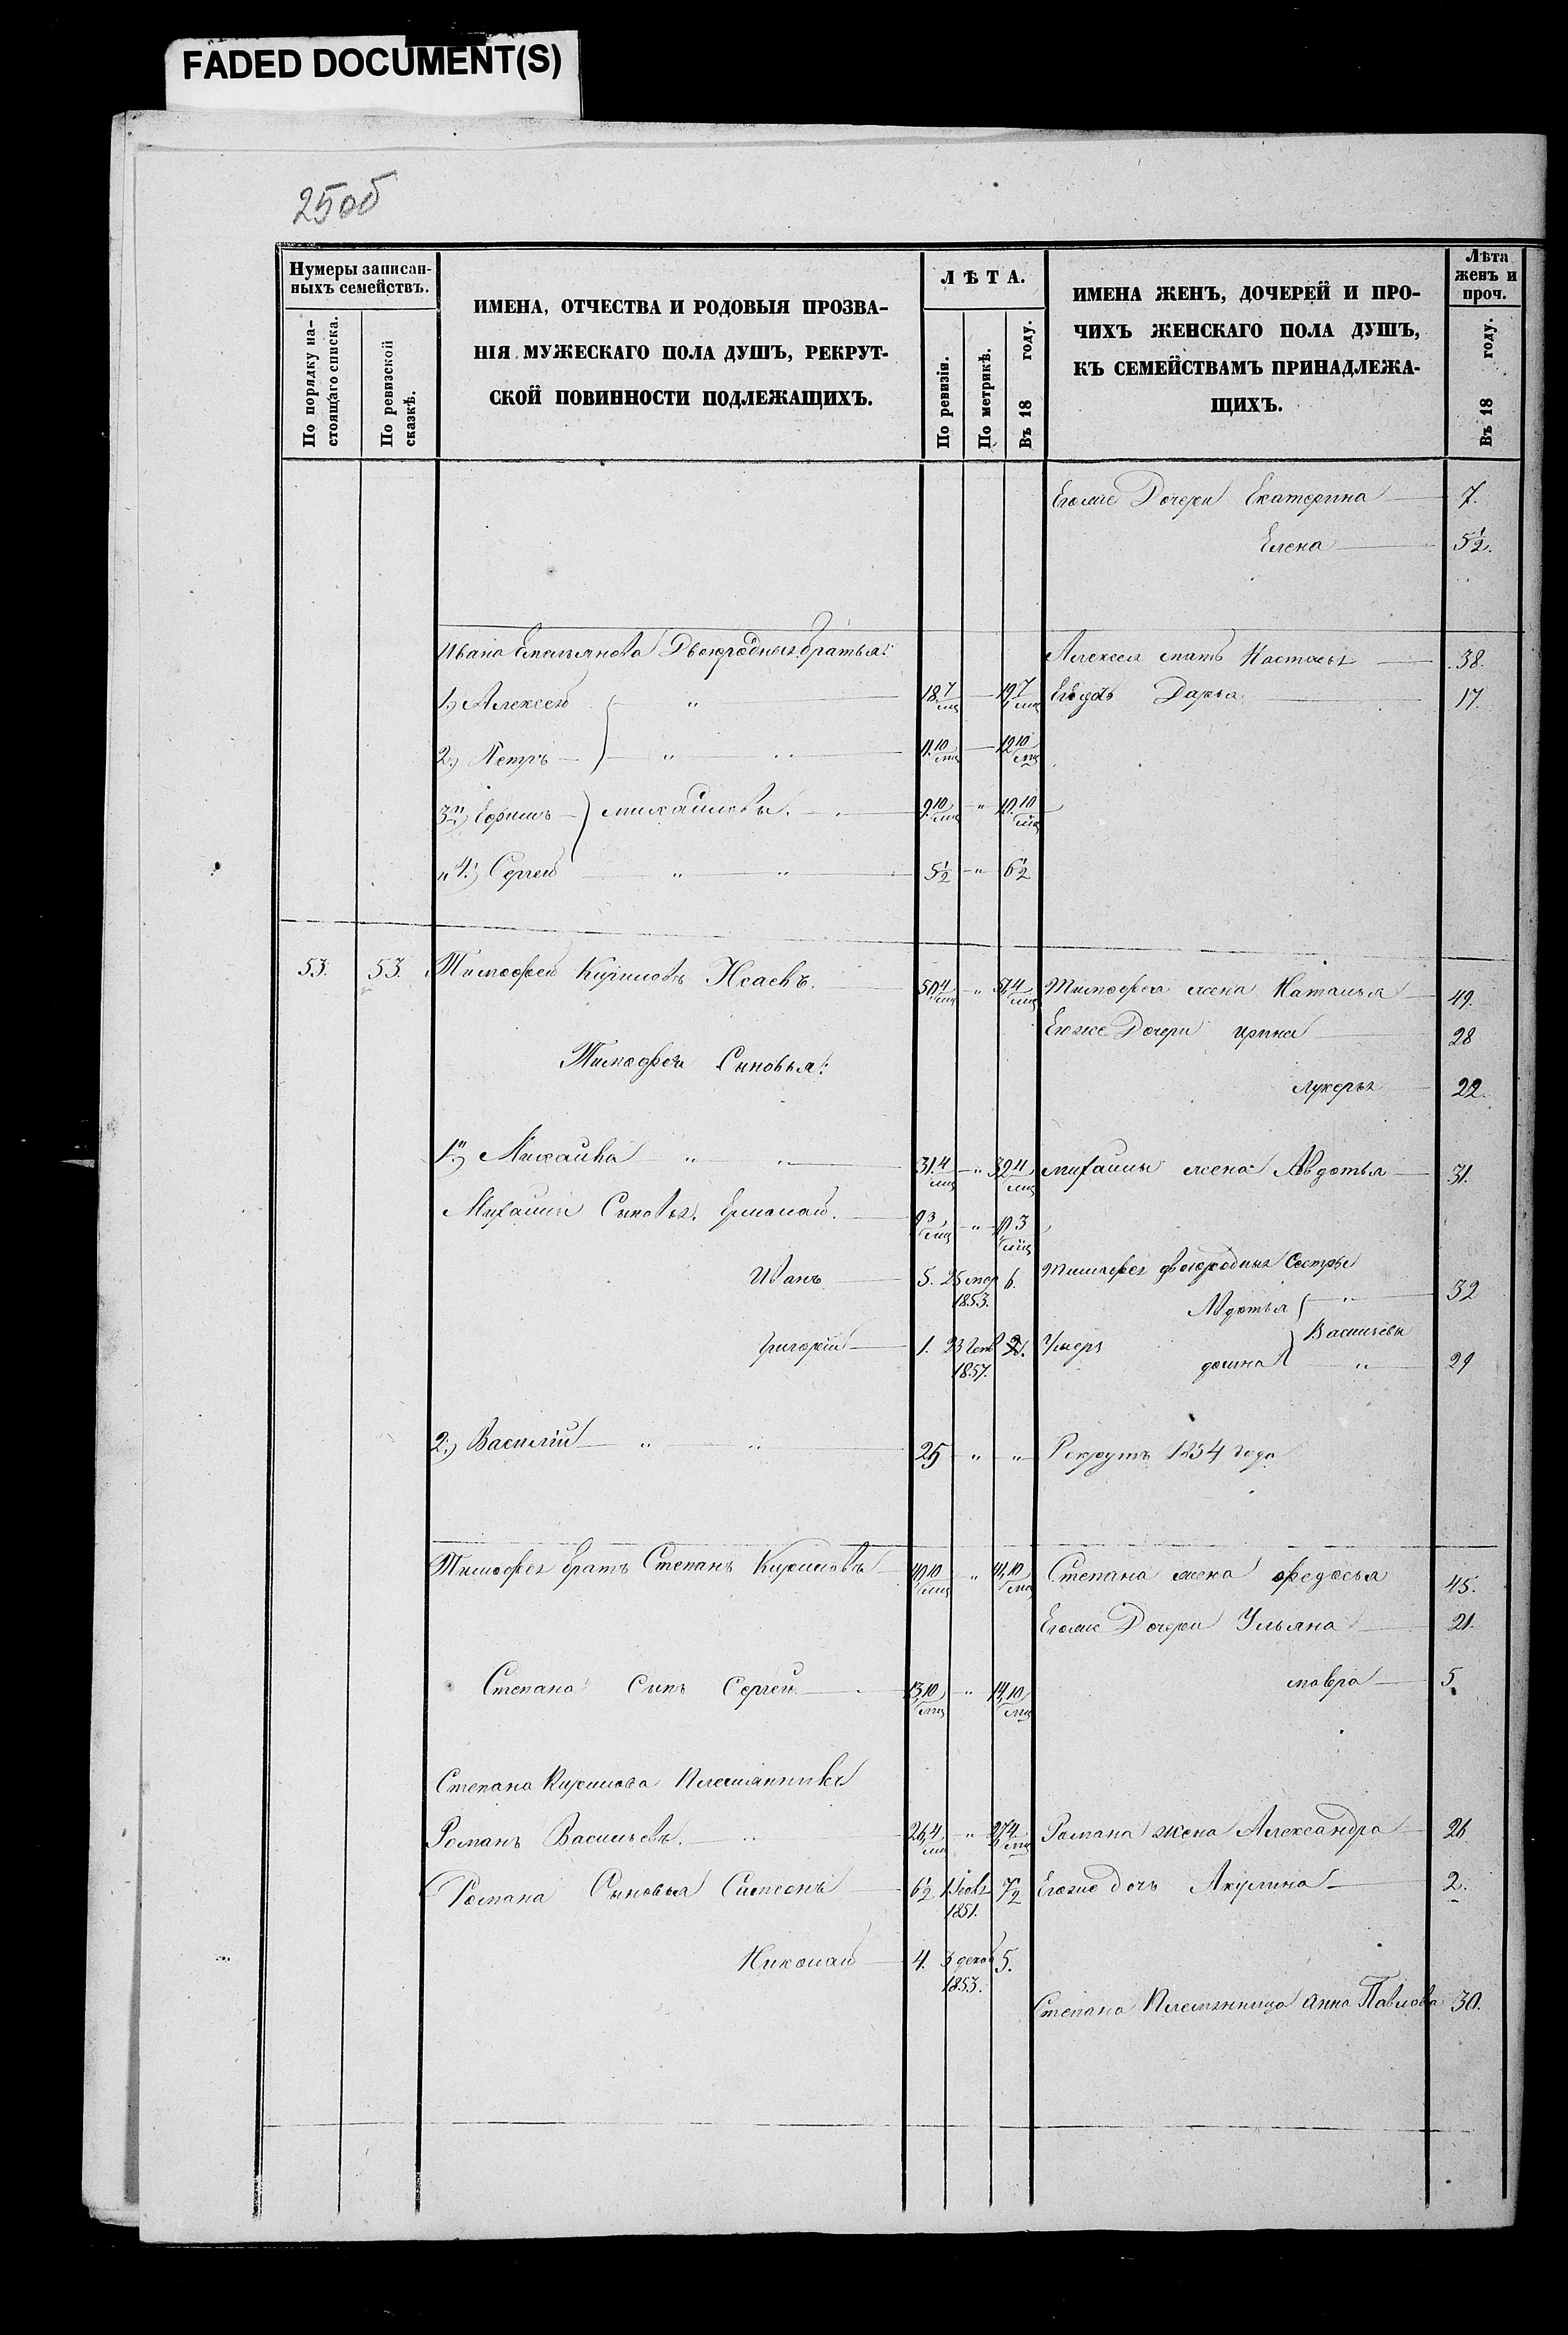 FADED DOCUMENT(S)
25об
Нумеры записан-
ныхъ семействъ.
По порядку на-
стоящаго списка.
По ревизской
сказкѣ.
ИМЕНА, ОТЧЕСТВА И РОДОВЫЯ ПРОЗВА-
НІЯ МУЖЕСКАГО ПОЛА ДУШЪ, РЕКРУТ-
СКОЙ ПОВИННОСТИ ПОДЛЕЖАЩИХЪ.
ЛѢТА.
По ревизіи.
По метрикѣ.
Въ 18 году.
ИМЕНА ЖЕНЪ, ДОЧЕРЕЙ И ПРО-
ЧИХЪ ЖЕНСКАГО ПОЛА ДУШЪ,
КЪ СЕМЕЙСТВАМЪ ПРИНАДЛЕЖА-
ЩИХЪ.
Лѣта
женъ и
проч.
Въ 18 году.
Егоже Дочери Екатерина 7.
Елена 5½.
Ивана Емельянова Двоюродныя братья:
Алексея мать Настасья 38.
1.) Алексей " 18 7/мц 19 7/мц Дарья 17.
2.) Петръ " 11. 10/мц 12 10/мц
3") Ефимъ михайловы. 9. 10/мц " 10. 10/мц
" 4.) Сергей " " 5½ " 6½
53. 53. Тимофей Кириловъ Исаевъ. 4/мц " 4/мц Тимофея жена Наталья 49.
Егоже Дочери Ирина 28
Тимофея Сыновья:
Лукерья 22.
1".) Михаила " " 31. 4/мц " 32 4/мц михаилы жена Авдотья 31.
Михаилы Сыновья. Ермолай. 9 3/мц " 10 3/мц
Иванъ 5. 25 1853. 6. Тимофея двоюродныя Сестры
Авдотья " 32
Григорій 1. 23 1857. 2. Умеръ Васильевы
" 29
2.) Василій " " 25 " " Рекрутъ 1854 года
Тимофея братъ Степанъ Кириловъ 10/мц " 10/мц Степана жена федосья 45.
Егоже Дочери Ульяна 21.
Степана сынъ Сергей 13. 10/мц " 14. 10/мц мавра 5.
Степана Кирилова Племянники
Романъ Васильевъ. " 26. 4/мц " 27 4/мц Романа жена Александра 26
Романа Сыновья Симеонъ 6½ 1851. 7½ Егоже дочь Акулина 2.
Николай 4. 3 декаб 1853. 5.
Степана Племянница Анна Павлова 30.